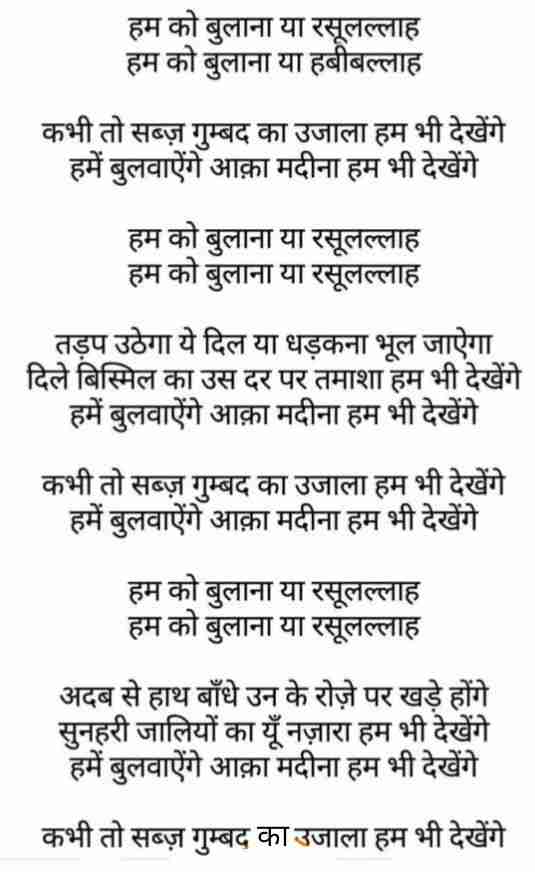 हम को बुलाना या रसूलल्लाह
हम को बुलाना या हबीबल्लाह
कभी तो सब्ज़ गुम्बद का उजाला हम भी देखेंगे
हमें बुलवाऐंगे आक़ा मदीना हम भी देखेंगे
हम को बुलाना या रसूलल्लाह
हम को बुलाना या रसूलल्लाह
तड़प उठेगा ये दिल या धड़कना भूल जाऐगा
दिले बिस्मिल का उस दर पर तमाशा हम भी देखेंगे
हमें बुलवाऐंगे आक़ा मदीना हम भी देखेंगे
कभी तो सब्ज़ गुम्बद का उजाला हम भी देखेंगे
हमें बुलवाऐंगे आक़ा मदीना हम भी देखेंगे
हम को बुलाना या रसूलल्लाह
हम को बुलाना या रसूलल्लाह
अदब से हाथ बाँधे उन के रोज़े पर खड़े होंगे
सुनहरी जालियों का यूँ नज़ारा हम भी देखेंगे
हमें बुलवाऐंगे आक़ा मदीना हम भी देखेंगे
कभी तो सब्ज़ गुम्बद का उजाला हम भी देखेंगे